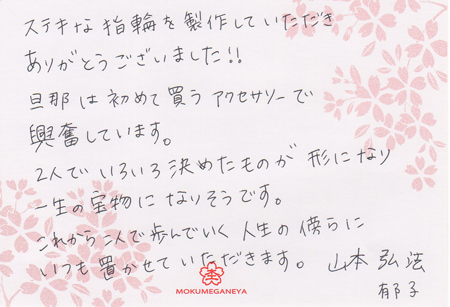 ステキな指輪を製作していただき
ありがとうございました!!
旦那は初めて買うアクセサリーで
興奮しています。
2人でいろいろ決めたものが形になり
一生の宝物になりそうです。
これから二人で歩んでいく人生の傍らに
いつも置かせていただきます。 山本 弘法
郁子
MOKUMEGANEYA